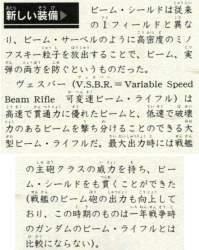 新しい装備
ビーム・シールドは従来
のIフィールドと異な
り、ビーム・サーベルのように高密度のミノ
フスキー粒子を放出することで、ビーム、実
弾の両方を防ぐというものだった。
ヴェスバー(V.S.B.R.=Variable Speed
Beam Rifle 可変速ビーム・ライフル)は
高速で貫通力に優れたビームと、低速で破壊
力のあるビームを撃ち分けることのできる大
型ビーム・ライフルだ。最大出力時には戦艦
の主砲クラスの威力を持ち、ビー
ム・シールドをも貫くことができた
(戦艦のビーム砲の出力も向上して
おり、この時期のものは一年戦争時
のガンダムのビーム・ライフルとは
比較にならない)。